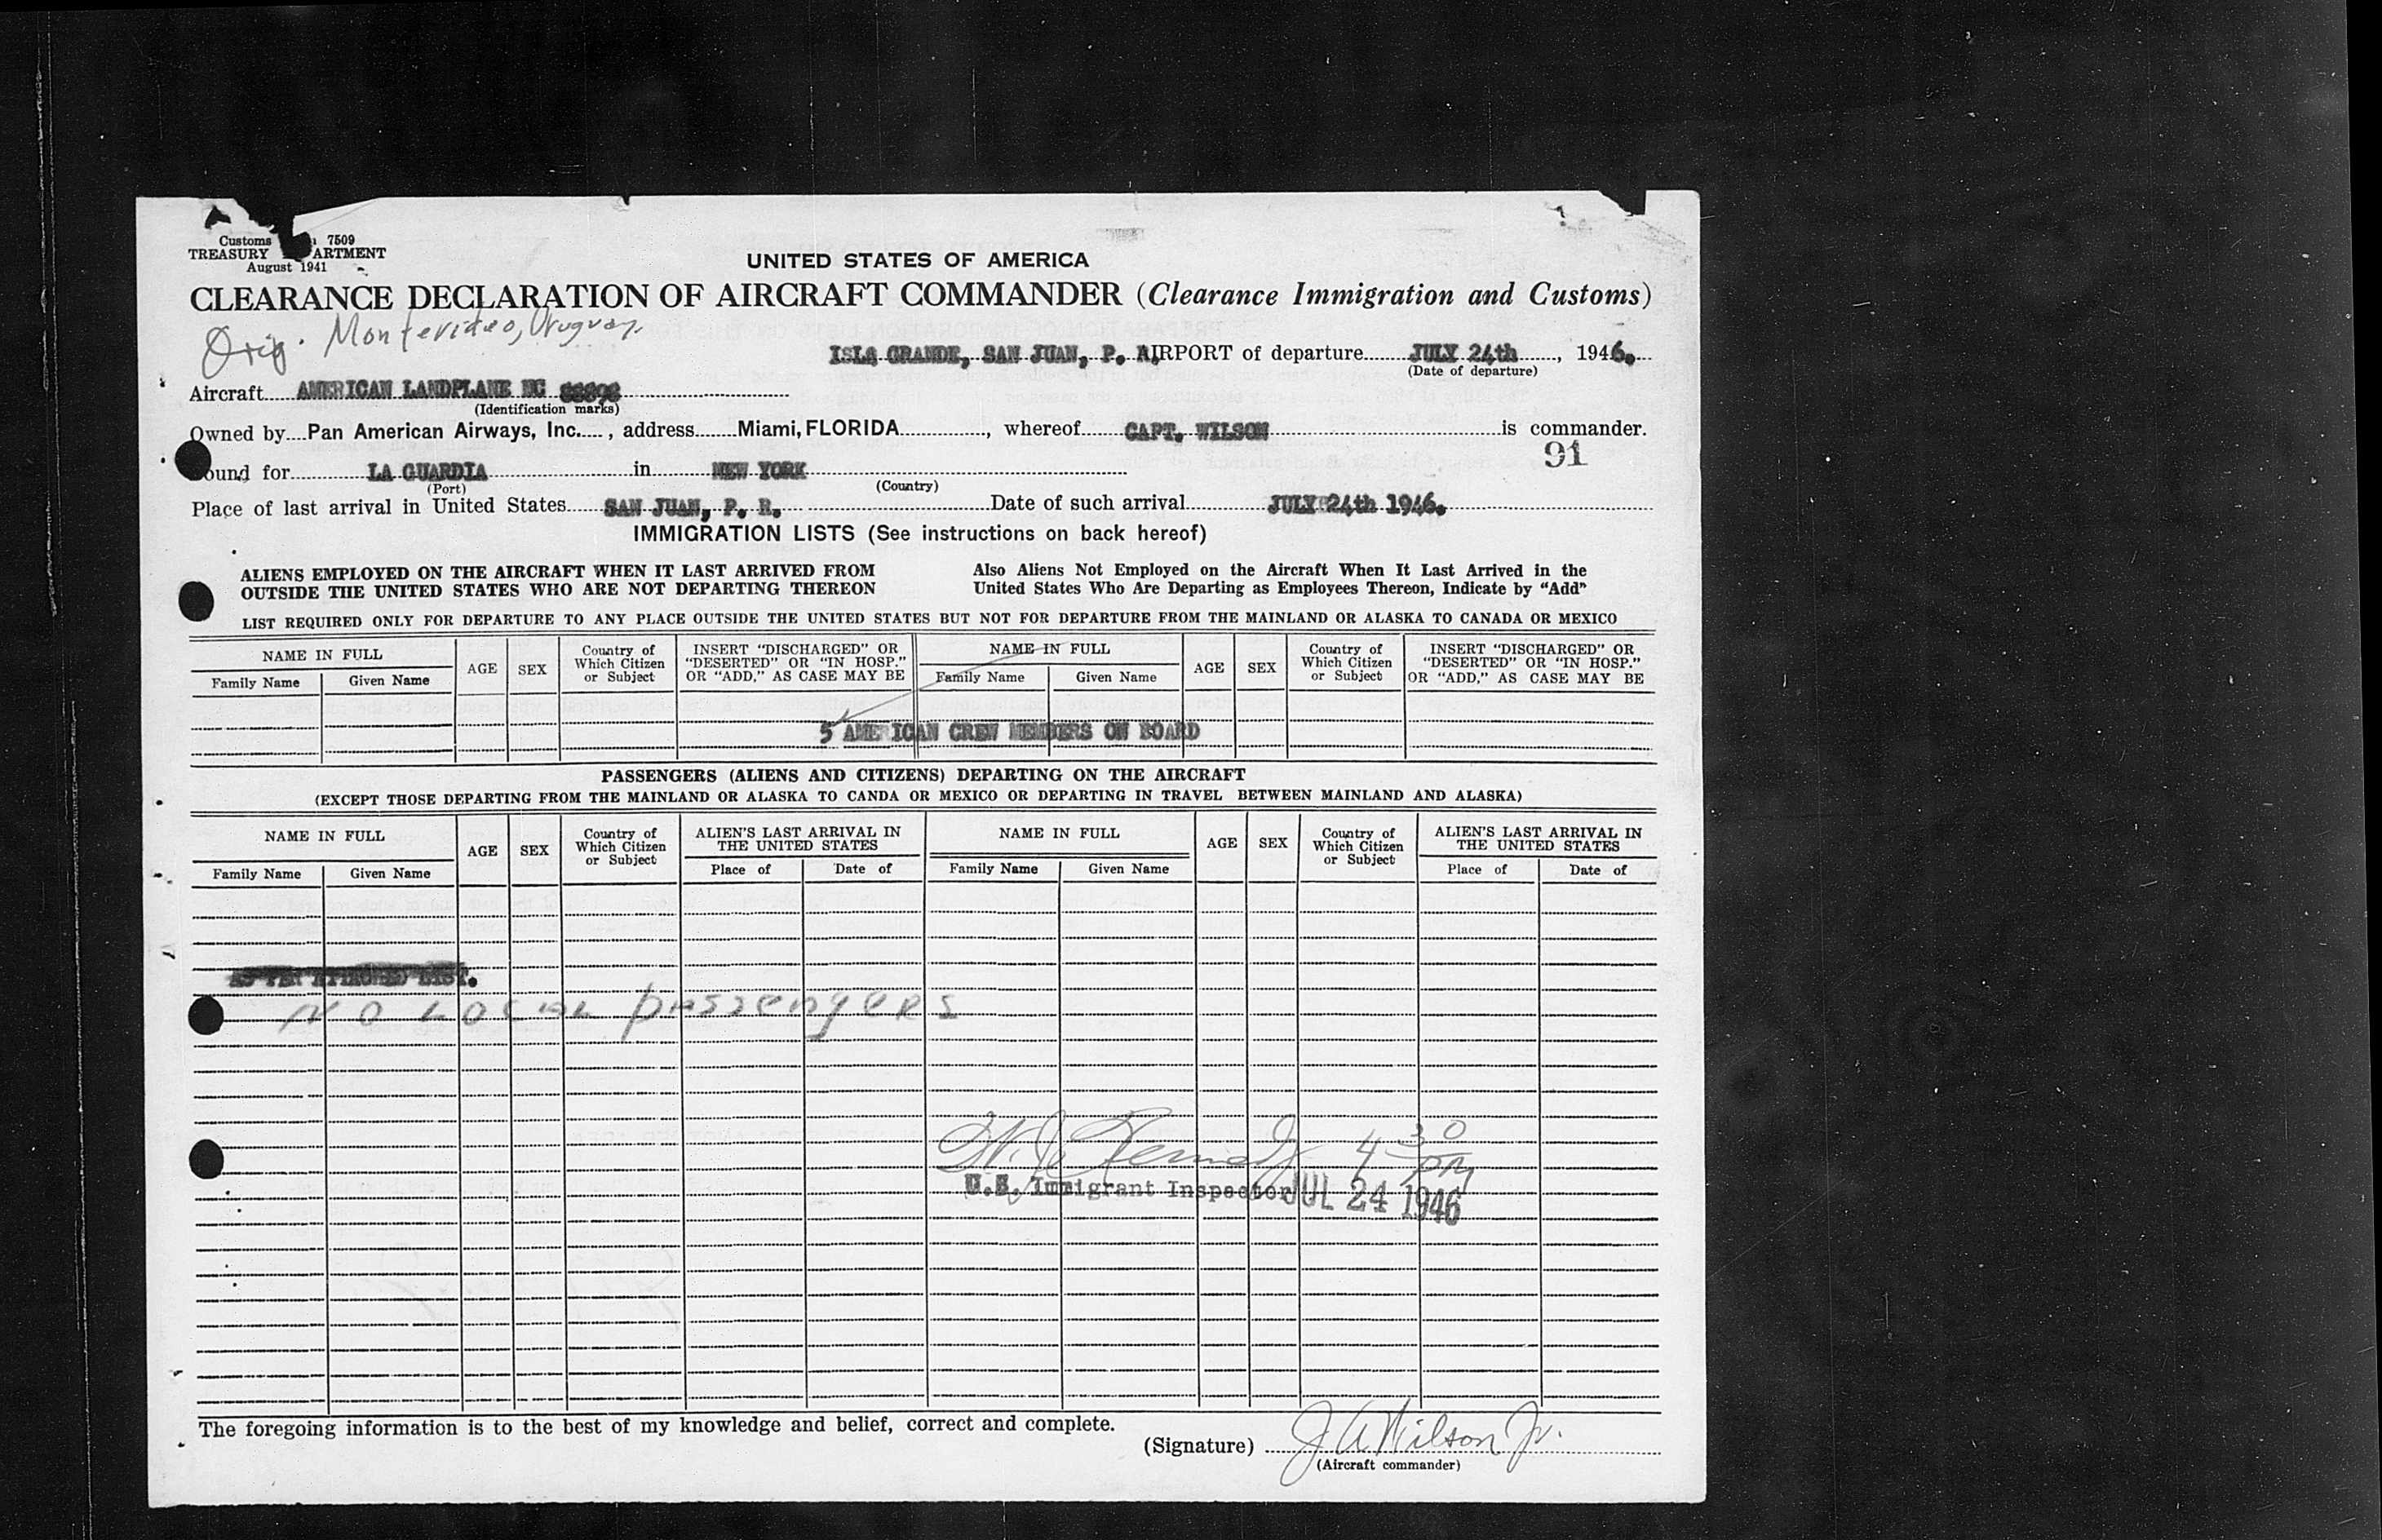 Customs 7509
TREASURY ARTMENT
August 1941
UNITED STATES OF AMERICA
CLEARANCE DECLARATION OF AIRCRAFT COMMANDER (Clearance Immigration and Customs)
Orig. Montevideo, Uruguay.
ISLA GRANDE, SAN JUAN, P. AIRPORT of departure JULY 24th, 1946.
(Date of departure)
Aircraft AMERICAN LANDPLANE NC
(Identification marks)
Owned by Pan American Airways, Inc., address Miami, FLORIDA, whereof CAPT. WILSON is commander.
91
ound for LA GUARDIA in NEW YORK
(Port) (Country)
Place of last arrival in United States SAN JUAN, P. R. Date of such arrival JULY 24th 1946.
IMMIGRATION LISTS (See instructions on back hereof)
ALIENS EMPLOYED ON THE AIRCRAFT WHEN IT LAST ARRIVED FROM
OUTSIDE THE UNITED STATES WHO ARE NOT DEPARTING THEREON
Also Aliens Not Employed on the Aircraft When It Last Arrived in the
United States Who Are Departing as Employees Thereon, Indicate by "Add"
LIST REQUIRED ONLY FOR DEPARTURE TO ANY PLACE OUTSIDE THE UNITED STATES BUT NOT FOR DEPARTURE FROM THE MAINLAND OR ALASKA TO CANADA OR MEXICO
NAME IN FULL
Family Name Given Name
AGE
SEX
Country of
Which Citizen
or Subject
INSERT "DISCHARGED" OR
"DESERTED" OR "IN HOSP."
OR "ADD," AS CASE MAY BE
NAME IN FULL
Family Name Given Name
AGE
SEX
Country of
Which Citizen
or Subject
INSERT "DISCHARGED" OR
"DESERTED" OR "IN HOSP."
OR "ADD," AS CASE MAY BE
5 AMERICAN CREW MEMBERS ON BOARD
PASSENGERS (ALIENS AND CITIZENS) DEPARTING ON THE AIRCRAFT
(EXCEPT THOSE DEPARTING FROM THE MAINLAND OR ALASKA TO CANDA OR MEXICO OR DEPARTING IN TRAVEL BETWEEN MAINLAND AND ALASKA)
NAME IN FULL
Family Name Given Name
AGE
SEX
Country of
Which Citizen
or Subject
ALIEN'S LAST ARRIVAL IN
THE UNITED STATES
Place of Date of
NAME IN FULL
Family Name Given Name
AGE
SEX
Country of
Which Citizen
or Subject
ALIEN'S LAST ARRIVAL IN
THE UNITED STATES
Place of Date of
AS PER ATTACHED LIST.
NO LOCAL passengers
W. J. Kennedy 4 30 pm
U.S. Immigrant Inspector JUL 24 1946
The foregoing information is to the best of my knowledge and belief, correct and complete.
(Signature) J A Wilson Jr.
(Aircraft commander)